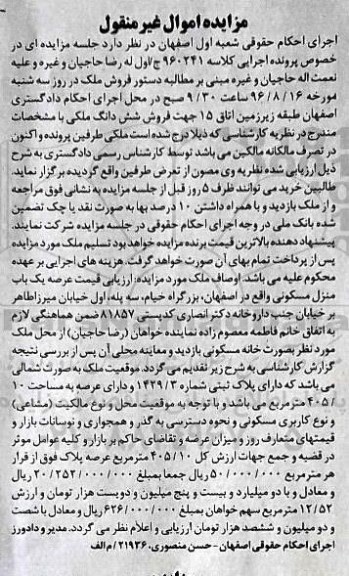 مزایده اموال غیر منقول
اجرای احکام حقوقی شعبه اول اصفهان در نظر دارد جلسه مزایده ای در
خصوص پرونده اجرایی کلاسه ۹۶۰۲۴۱ ج/اول له رضا حاجیان و غیره و علیه
نعمت اله حاجیان و غیره مبنی بر مطالبه دستور فروش ملک در روز سه شنبه
مورخه ۹۶/۸/۱۶ ساعت ۹/۳۰ صبح در محل اجرای احکام دادگستری
اصفهان طبقه زیرزمین اتاق ۱۵ جهت فروش شش دانگ ملکی با مشخصات
مندرج در نظریه کارشناسی که ذیلا درج شده است ملکی طرفین پرونده و اکنون
در تصرف مالکانه مالکین می باشد توسط کارشناس رسمی دادگستری به شرح
ذیل ارزیابی شده نظریه وی مصون از تعرض طرفین واقع گردیده برگزار نماید.
طالبین خرید می توانند ظرف ۵ روز قبل از جلسه مزایده به نشانی فوق مراجعه
و از ملک بازدید و با همراه داشتن ۱۰ درصد بها به صورت نقد یا چک تضمین
شده بانک ملی در وجه اجرای احکام حقوقی در جلسه مزایده شرکت نمایند.
پیشنهاد دهنده بالاترین قیمت برنده مزایده خواهد بود تسلیم ملک مورد مزایده
پس از پرداخت تمام بهای آن صورت خواهد گرفت. هزینه های اجرایی بر عهده
محکوم علیه می باشد. اوصاف ملک مورد مزایده: ارزیابی قیمت عرصه یک باب
منزل مسکونی واقع در اصفهان، بزرگراه خیام، سه پله، اول خیابان میرزاطاهر
بر خیابان جنب داروخانه دکتر انصاری کدپستی ۸۱۸۵۷ ضمن هماهنگی لازم
به اتفاق خانم فاطمه معصوم زاده نماینده خواهان (رضا حاجیان) از محل ملک
مورد نظر بصورت خانه مسکونی بازدید و معاینه محلی آن پس از بررسی نتیجه
گزارش کارشناسی به شرح زیر تقدیم می گردد. موقعیت ملک به صورت شمالی
می باشد که دارای پلاک ثبتی شماره ۱۴۲۹/۳ و دارای عرصه به مساحت ۱۰
/۴۰۵ مترمربع می باشد و با توجه به موقعیت محل و نوع مالکیت (مشاعی)
و نوع کاربری مسکونی و نحوه دسترسی به گذر و همجواری و نوسانات بازار و
قیمتهای متعارف روز و میزان عرضه و تقاضای حاکم بر بازار و کلیه عوامل موثر
در قضیه و جمع جهات ارزش کل ۴۰۵/۱۰ مترمربع عرصه پلاک فوق از قرار
هر مترمربع ۵۰/۰۰۰/۰۰۰ ریال جمعا بمبلغ ۲۰/۲۵۲/۰۰۰/۰۰۰ ریال
و معادل و با دو میلیارد و بیست و پنج میلیون و دویست هزار تومان و ارزش
۱۲/۵۲ مترمربع سهم خواهان بمبلغ ۶۲۶/۰۰۰/۰۰۰ ریال و معادل با شصت
و دو میلیون و ششصد هزار تومان ارزیابی و اعلام نظر می گردد. مدیر و دادورز
اجرای احکام حقوقی اصفهان - حسن منصوری. ۲۱۹۳۶/م الف